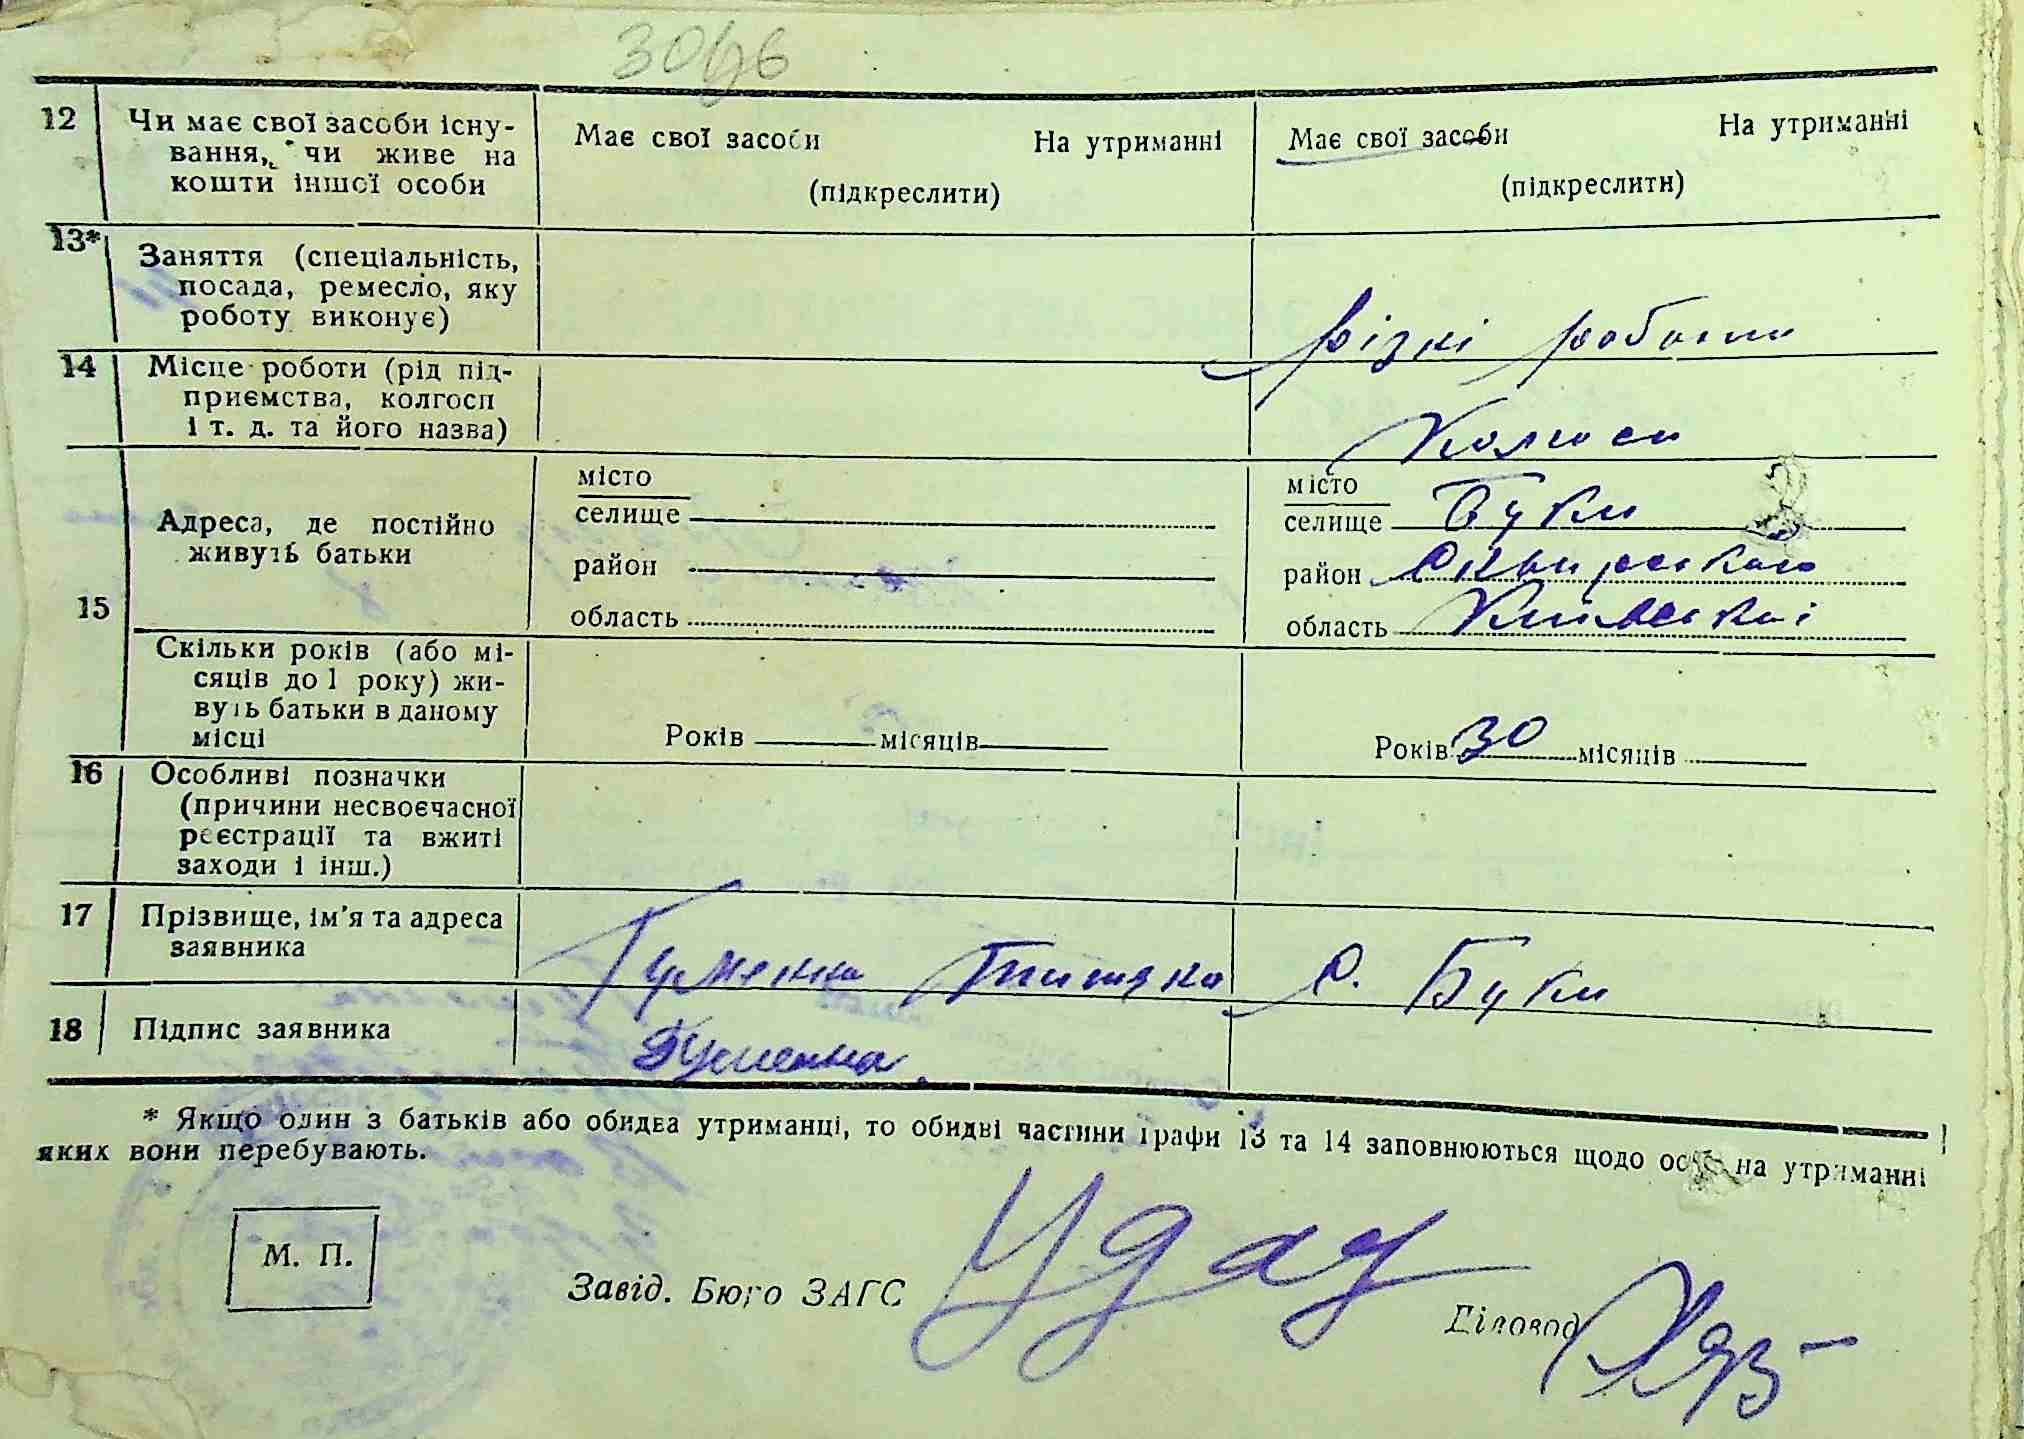 3046
12 Чи має свої засоби існу-
вання, чи живе на
кошти іншої особи
Має свої засоби На утриманні
(підкреслити)
Має свої засоби На утриманні
(підкреслити)
13* Заняття (спеціальність,
посада, ремесло, яку
роботу виконує)
різні роботи
14 Місце роботи (рід під-
приємства, колгосп
і т. д. та його назва)
Колгосп
15
Адреса, де постійно
живуть батьки
місто
селище
район
область
місто
селище Буки
район Сквирського
область Київської
Скільки років (або мі-
сяців до 1 року) жи-
вуть батьки в даному
місці
Років місяців
Років 30 місяців
16 Особливі позначки
(причини несвоєчасної
реєстрації та вжиті
заходи і інш.)
17 Прізвище, ім'я та адреса
заявника
Гуменна с. Буки
18 Підпис заявника
Гуменна
* Якщо один з батьків або обидва утриманці, то обидві частини графи 13 та 14 заповнюються щодо осіб, на утриманні
яких вони перебувають.
М. П.
Завід. Бюро ЗАГС
Діловод